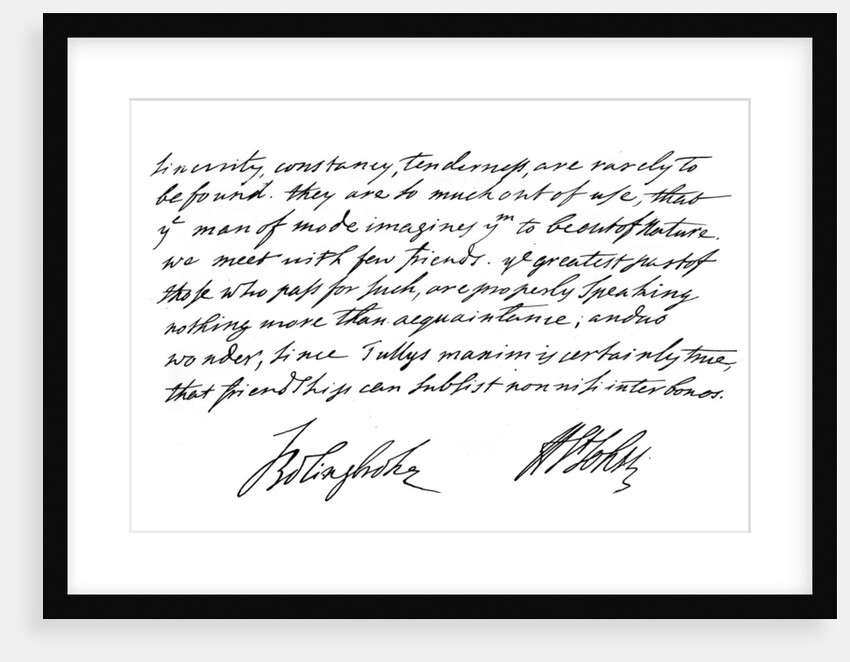 sincerity, constancy, tenderness, are rarely to
be found. they are so much out of use, that
yᵉ man of mode imagines yᵐ to be out of Nature.
we meet with few friends. yᵉ greatest part of
those who pass for such, are properly speaking
nothing more than acquaintance; and no
wonder, since Tullys maxim is certainly true,
that friendship can subsist non nisi inter bonos.
Bolingbroke H St John